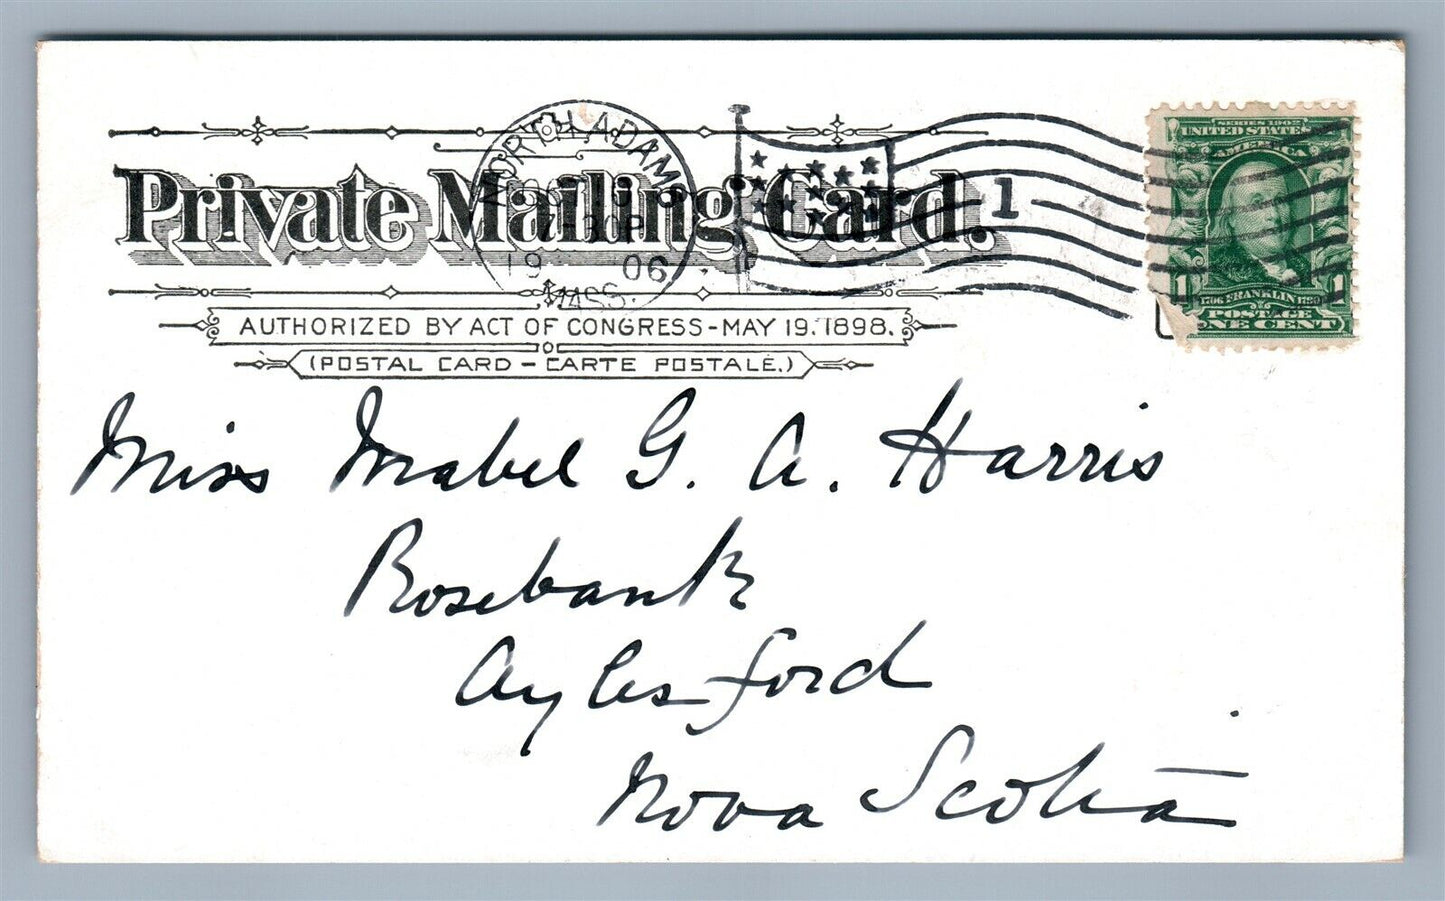 Private Mailing Card.
AUTHORIZED BY ACT OF CONGRESS-MAY 19. 1898.
(POSTAL CARD - CARTE POSTALE.)
NORTH ADAMS
7-30P
19 06
MASS.
1
SERIES 1902
UNITED STATES OF
AMERICA
1 1
1706 FRANKLIN 1790
POSTAGE
ONE CENT
Miss Mabel G. A. Harris
Rosebank
Aylesford
Nova Scotia